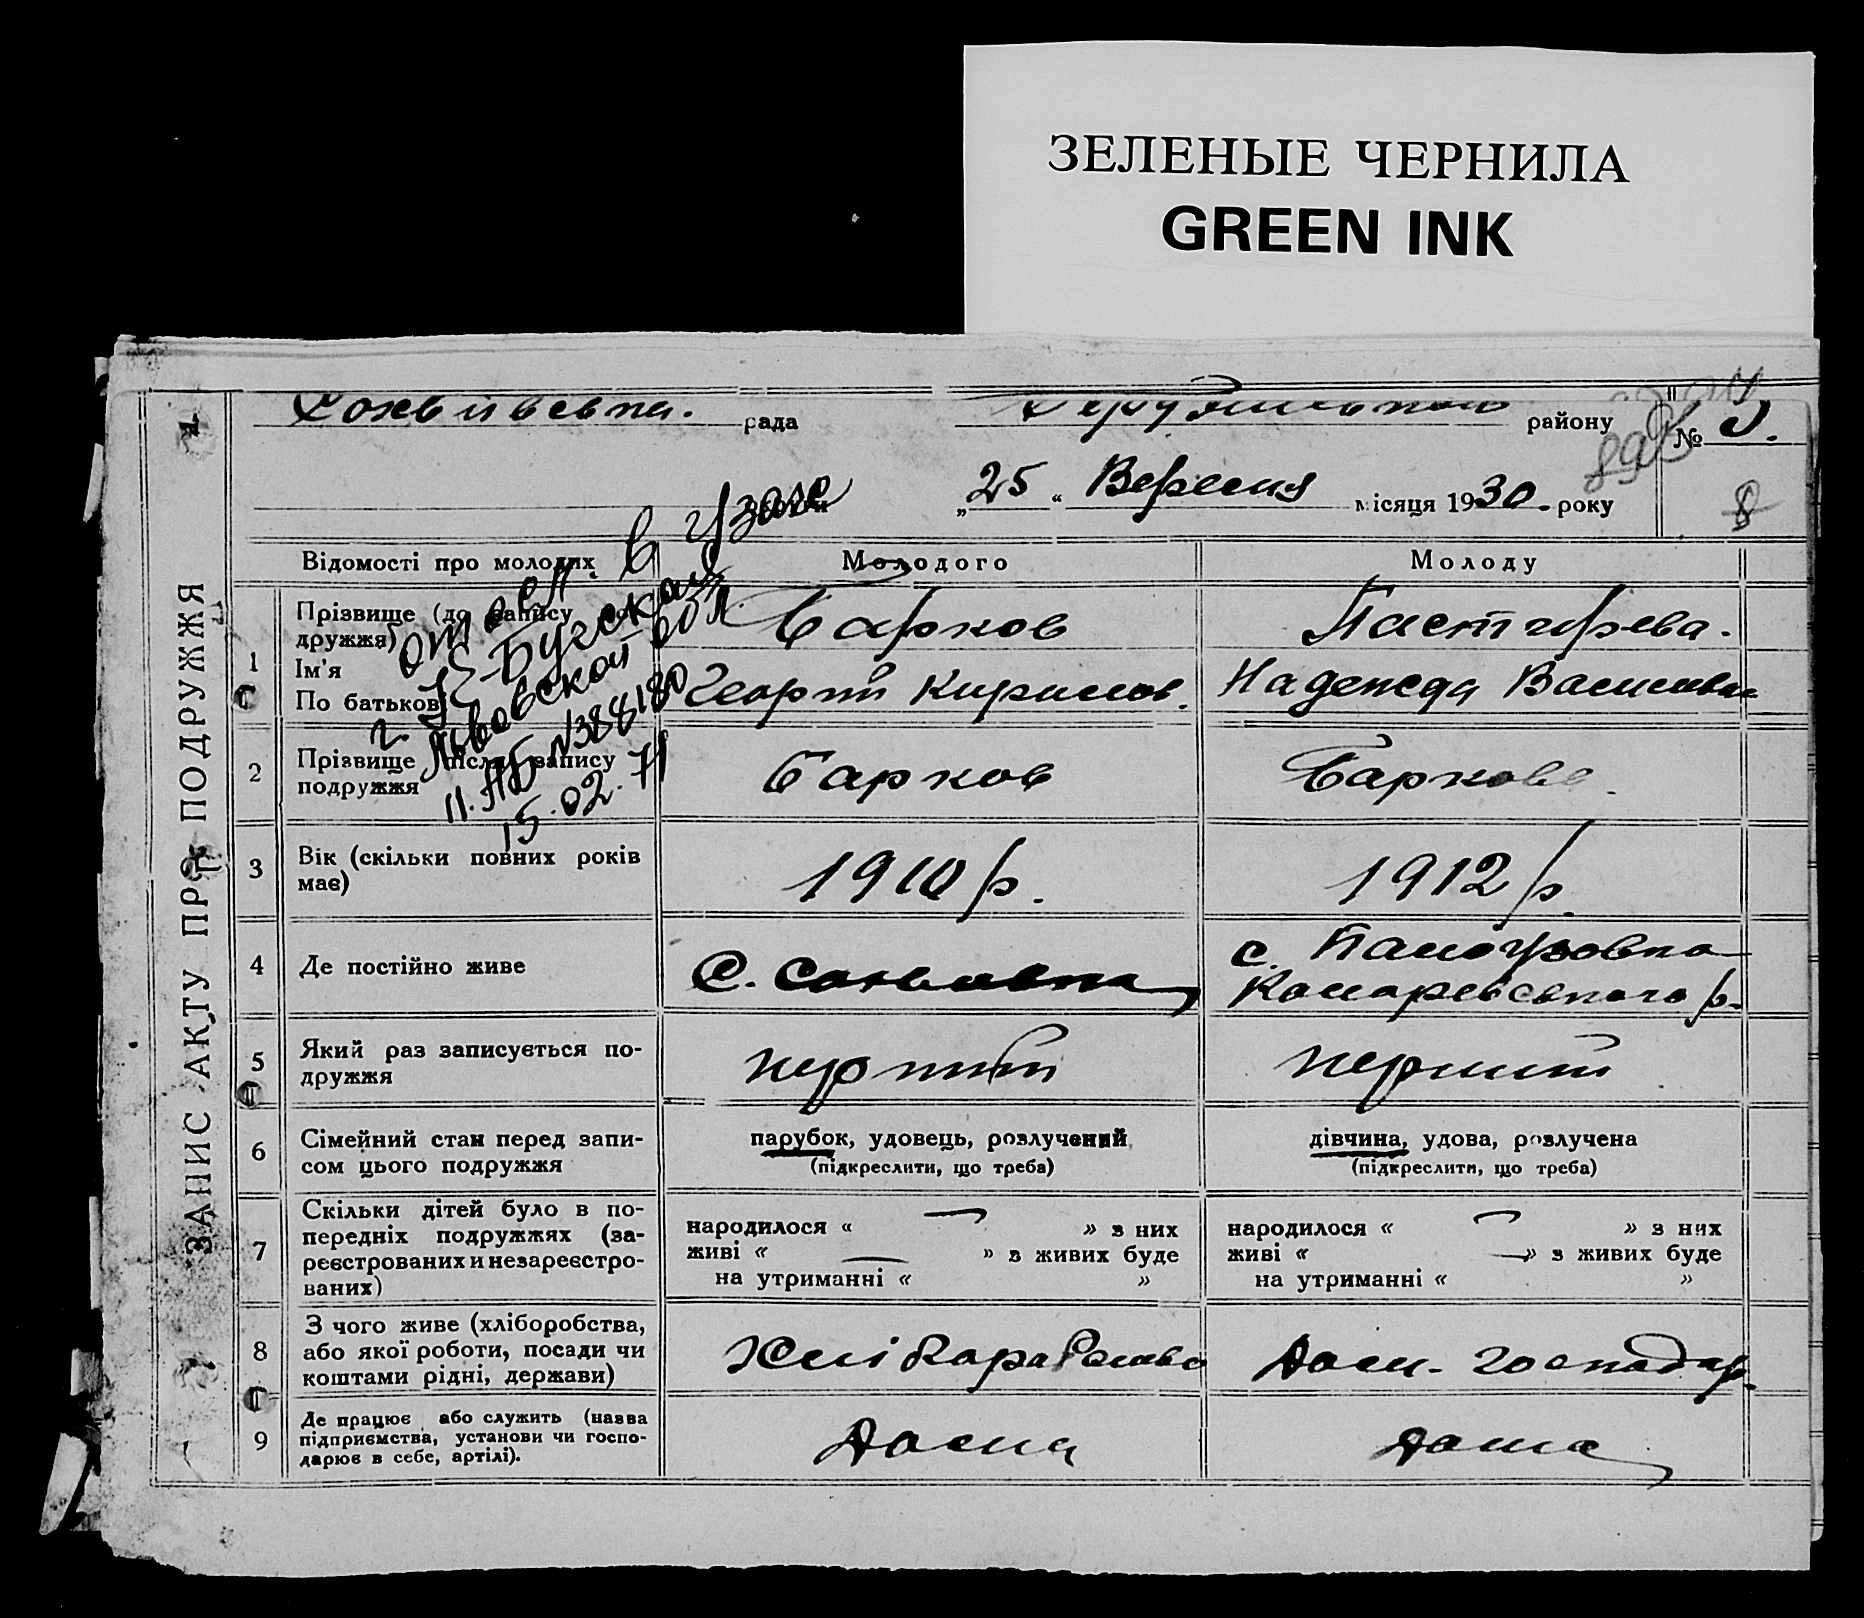 ЗЕЛЕНЫЕ ЧЕРНИЛА
GREEN INK
рада
району
№
„25“ Вересня місяця 1930. року
8
ЗАПИС АКТУ ПРО ПОДРУЖЖЯ
отдел. в г ЗАГС
г. К-Бугской
Львовской обл
11. АБ №388180
15.02.71
Відомості про молодих
Молодого
Молоду
1
Прізвище (до запису по-
дружжя)
Ім'я
По батькові
Барков
Георгій Кирилов.
Пастирева.
Надежда Василівна
2
Прізвище після запису
подружжя
Барков
Баркова.
3
Вік (скільки повних років
має)
1910 р.
1912 р.
4
Де постійно живе
с.
с.
р.
5
Який раз записується по-
дружжя
перший
перший
6
Сімейний стан перед запи-
сом цього подружжя
парубок, удовець, розлучений
(підкреслити, що треба)
дівчина, удова, розлучена
(підкреслити, що треба)
7
Скільки дітей було в по-
передніх подружжях (за-
реєстрованих и незареєстро-
ваних)
народилося « — » з них
живі « — » з живих буде
на утриманні « »
народилося « — » з них
живі « — » з живих буде
на утриманні « »
8
З чого живе (хліборобства,
або якої роботи, посади чи
коштами рідні, держави)
Хліборобство
Дом. господар.
9
Де працює або служить (назва
підприємства, установи чи госпо-
дарює в себе, артілі).
Дома
Дома